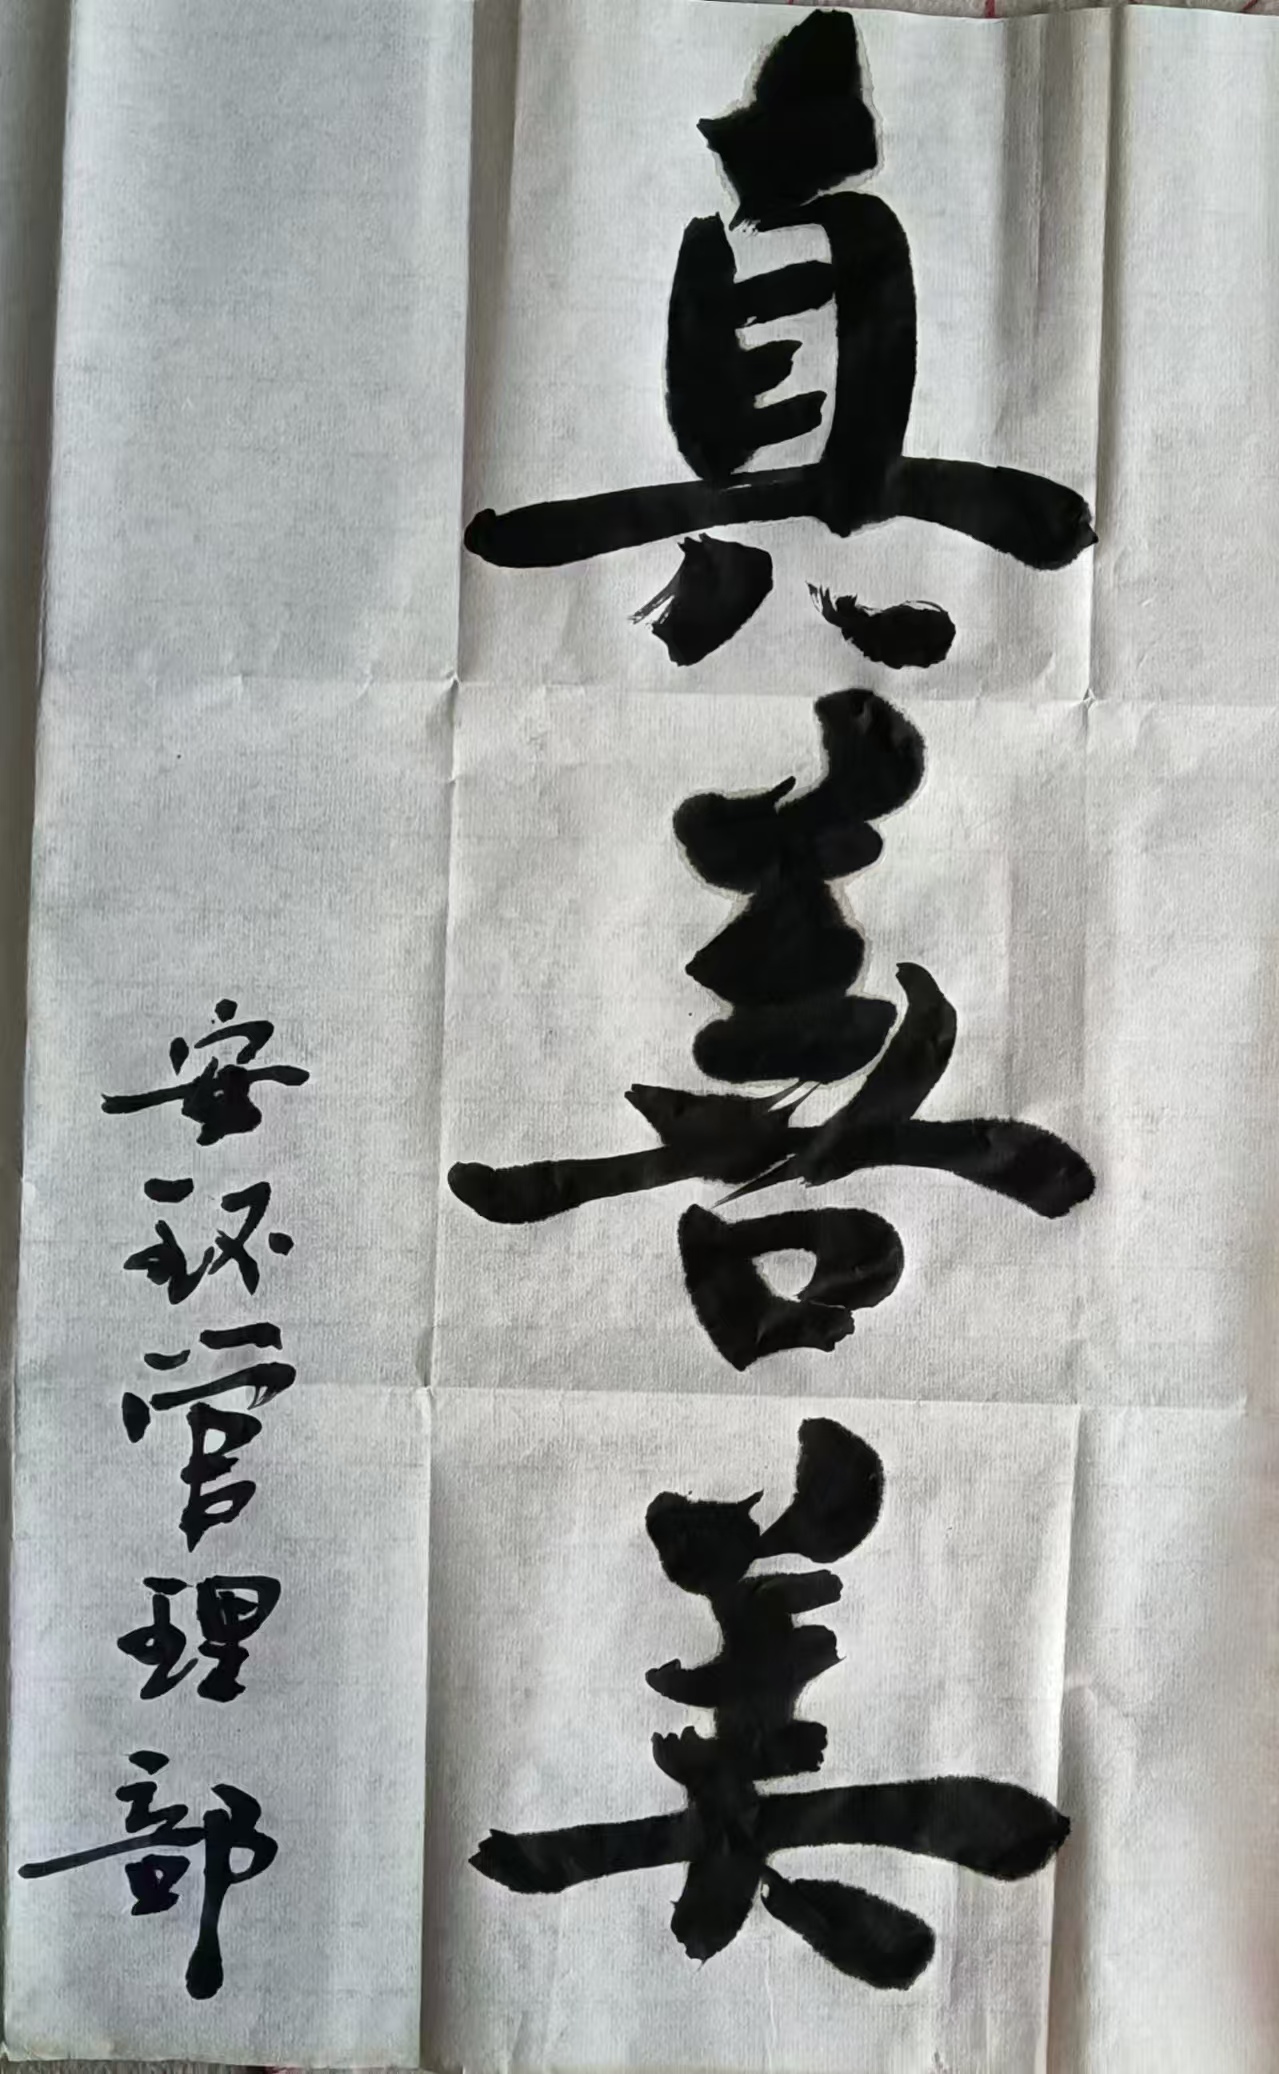 真善美
安环管理部